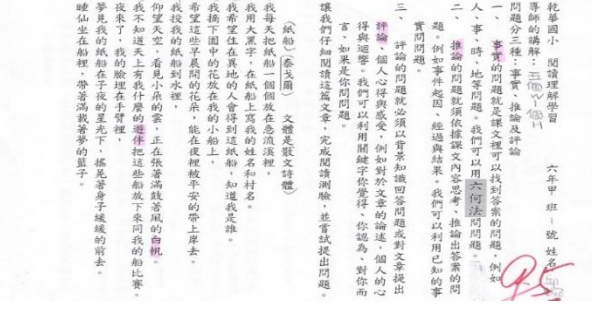 乾華國小 閱讀理解學習 六年甲班 號 姓名
導師的講解：五個W一個H
問題分三種：事實、推論及評論
一、事實的問題就是課文裡可以找到答案的問題，例如
人、事、時、地等問題。我們可以用六何法問問題。
二、推論的問題就須依據課文內容思考、推論出答案的問
題。例如事件起因、經過與結果。我們可以利用已知的事
實問問題。
三、評論的問題就必須以背景知識回答問題或對文章提出
評論、個人心得與感受，例如對於文章的論述，個人的心
得與迴響。我們可以利用關鍵字你覺得、你認為、對你而
言、如果是你問問題。
讓我們仔細閱讀這篇文章，完成閱讀測驗，並嘗試提出問題。
(紙船)(泰戈爾) 文體是散文詩體)
我每天把紙船一個個放在急流溪裡，
我用大黑字，在紙船上寫我的姓名和村名。
我希望住在異地的人會得到這紙船，知道我是誰。
我摘下園中的花放在我的小船上，
希望這些早晨開的花朵，能在夜裡被平安的帶上岸去。
我投我的紙船到水裡，
仰望天空，看見小朵的雲，正在張著滿鼓著風的白帆。
我不知道天上有我什麼的遊伴把這些船放下來同我的船比賽。
夜來了，我的臉埋在手臂裡，
夢見我的紙船在子夜的星光下，搖晃著身子緩緩的前去。
睡仙坐在船裡，帶著滿載著夢的籃子。
95